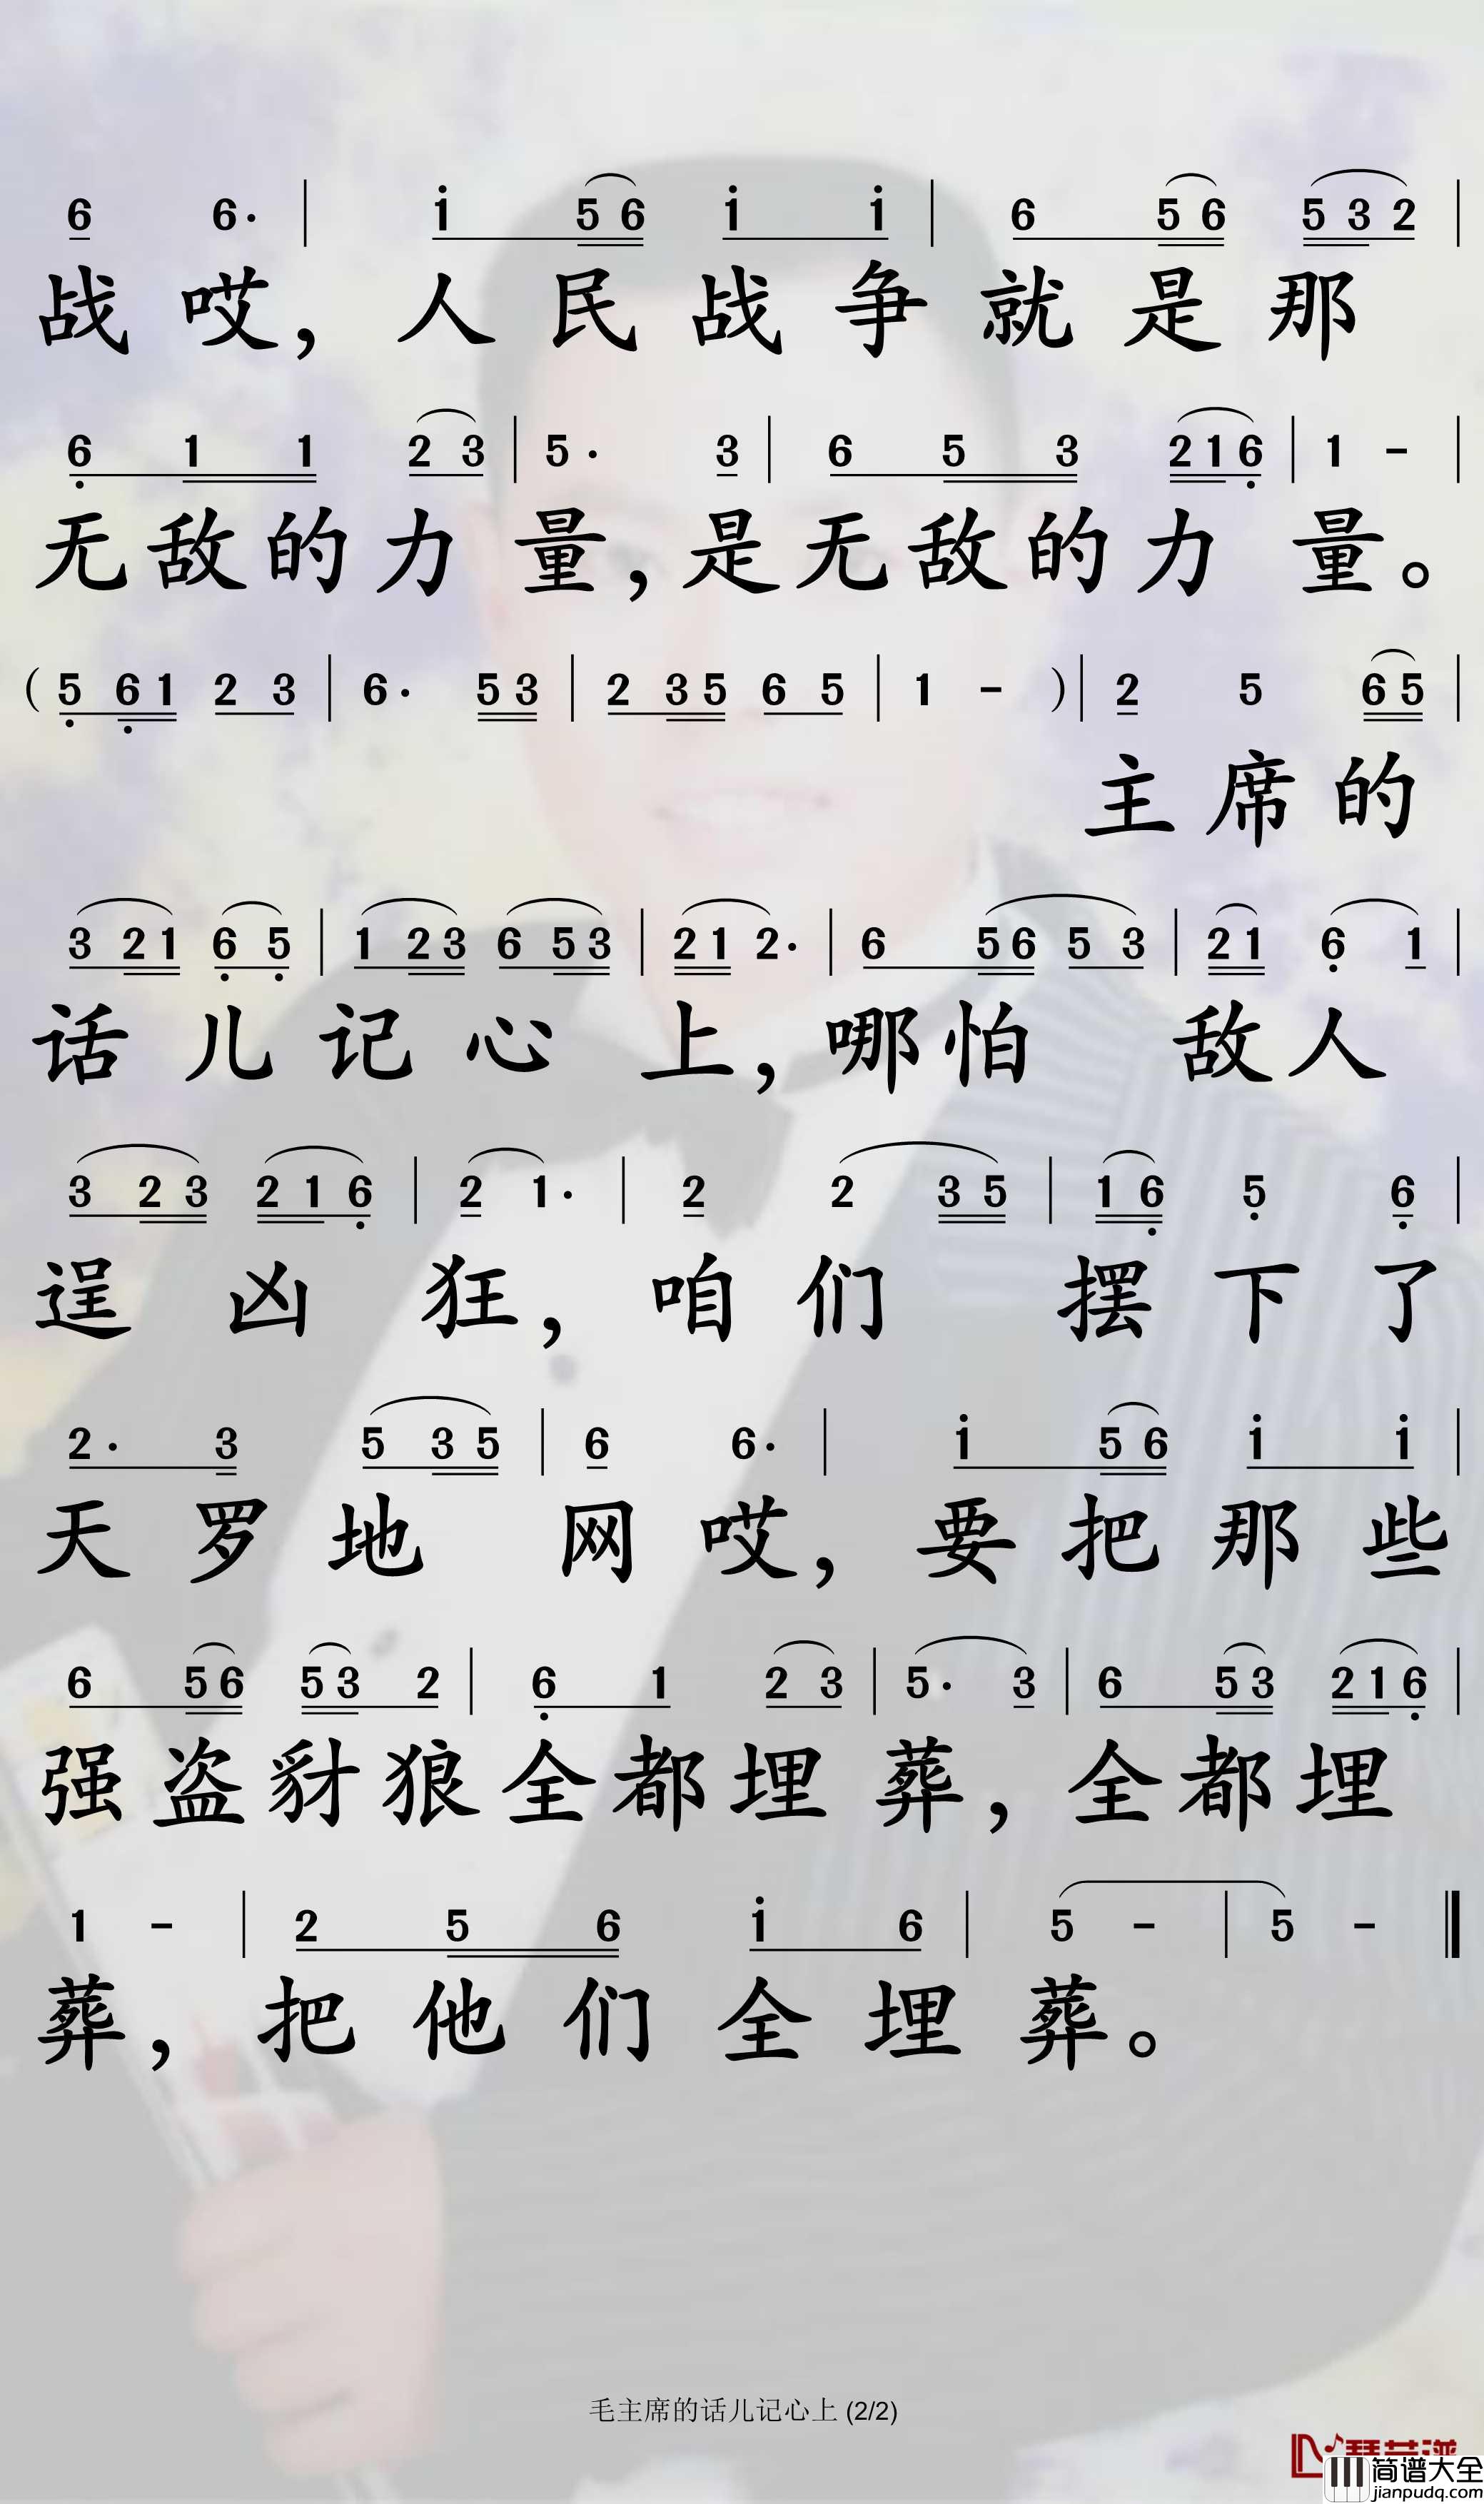 6 6· | i 5 6 i i | 6 5 6 5 3 2 |
战哎，人民战争就是那
6 1 1 2 3 | 5· 3 | 6 5 3 2 1 6 | 1 – |
无敌的力量，是无敌的力量。
( 5 6 1 2 3 | 6· 5 3 | 2 3 5 6 5 | 1 – ) | 2 5 6 5 |
主席的
3 2 1 6 5 | 1 2 3 6 5 3 | 2 1 2· | 6 5 6 5 3 | 2 1 6 1 |
话儿记心上，哪怕敌人
3 2 3 2 1 6 | 2 1· | 2 2 3 5 | 1 6 5 6 |
逞凶狂，咱们摆下了
2· 3 5 3 5 | 6 6· | i 5 6 i i |
天罗地网哎，要把那些
6 5 6 5 3 2 | 6 1 2 3 | 5· 3 | 6 5 3 2 1 6 |
强盗豺狼全都埋葬，全都埋
1 – | 2 5 6 i 6 | 5 – | 5 – ‖
葬，把他们全埋葬。
毛主席的话儿记心上 (2/2)
简谱大全
jianpudq.com